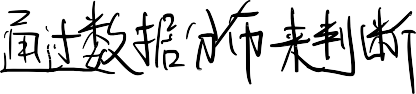 通过数据分布来判断